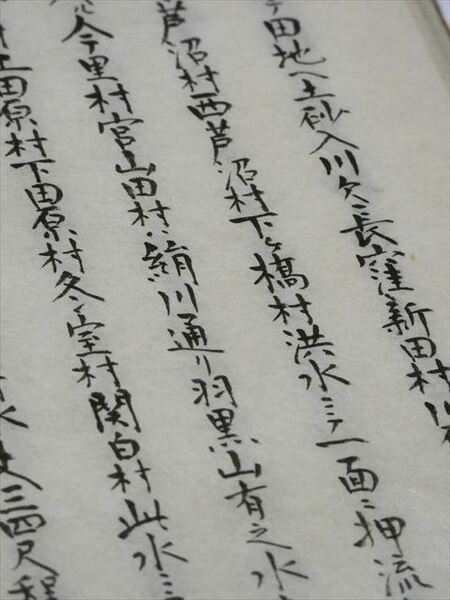 田地へ土砂入川欠長窪新田村
芦沼村西芦沼村下ケ橋村洪水ニテ一面ニ押流
今里村宮山田村絹川通リ羽黒山有之水
上田原村下田原村冬室村関白村此水ニ
三四尺程